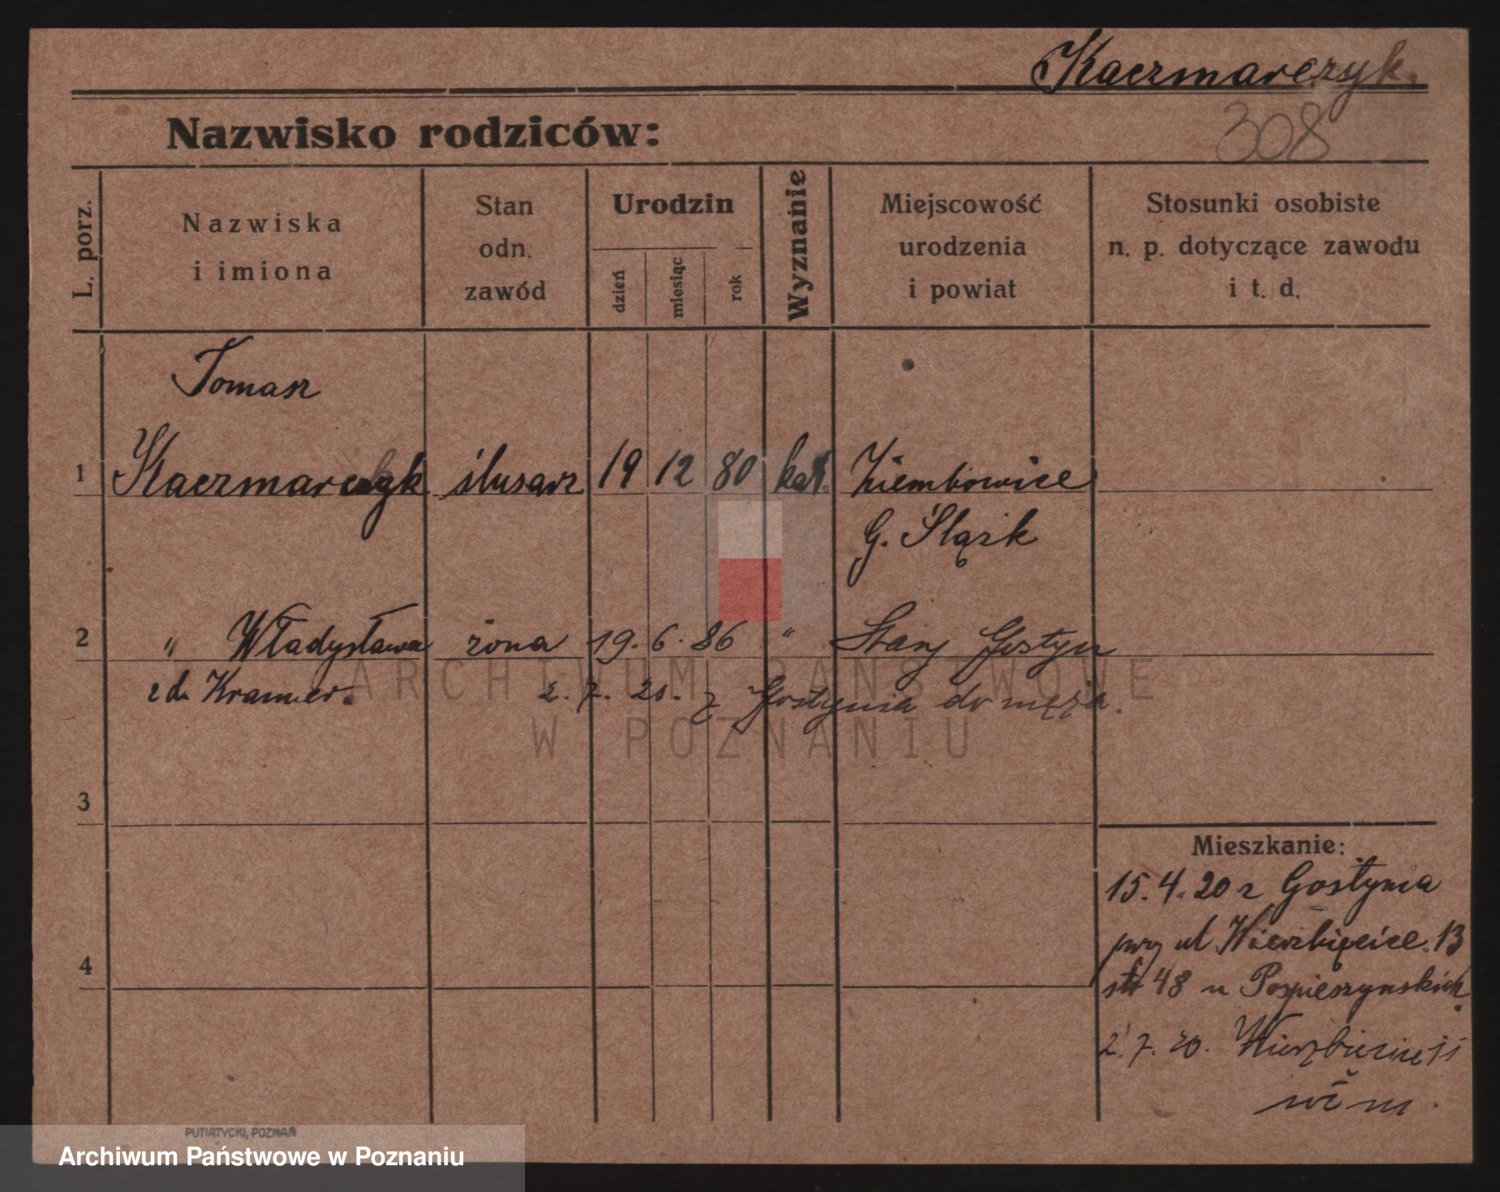 Kaczmarczyk.
308
Nazwisko rodziców:
L. porz.
Nazwiska
i imiona
Stan
odn.
zawód
Urodzin
dzień
miesiąc
rok
Wyznanie
Miejscowość
urodzenia
i powiat
Stosunki osobiste
n. p. dotyczące zawodu
i t. d.
Tomasz
1 Kaczmarczyk ślusarz 19 12 80 kat. Ziembowice
G. Śląsk
2 " Władysława żona 19. 6. 86 " Stary Gostyn
z d. Kramer. 2. 7. 20. z Gostynia do męża.
3
Mieszkanie:
15. 4. 20 z Gostynia
przy ul Wierzbięcice 13
48 u Pospieszynskich
2. 7. 20. Wierzbięcice
4
PUTIATYCKI, POZNAŃ
ARCHIWUM PAŃSTWOWE
W POZNANIU
Archiwum Państwowe w Poznaniu